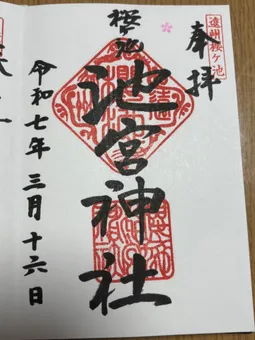 遠州桜ヶ池
奉拝
桜ヶ池
池宮神社
令和七年三月十六日